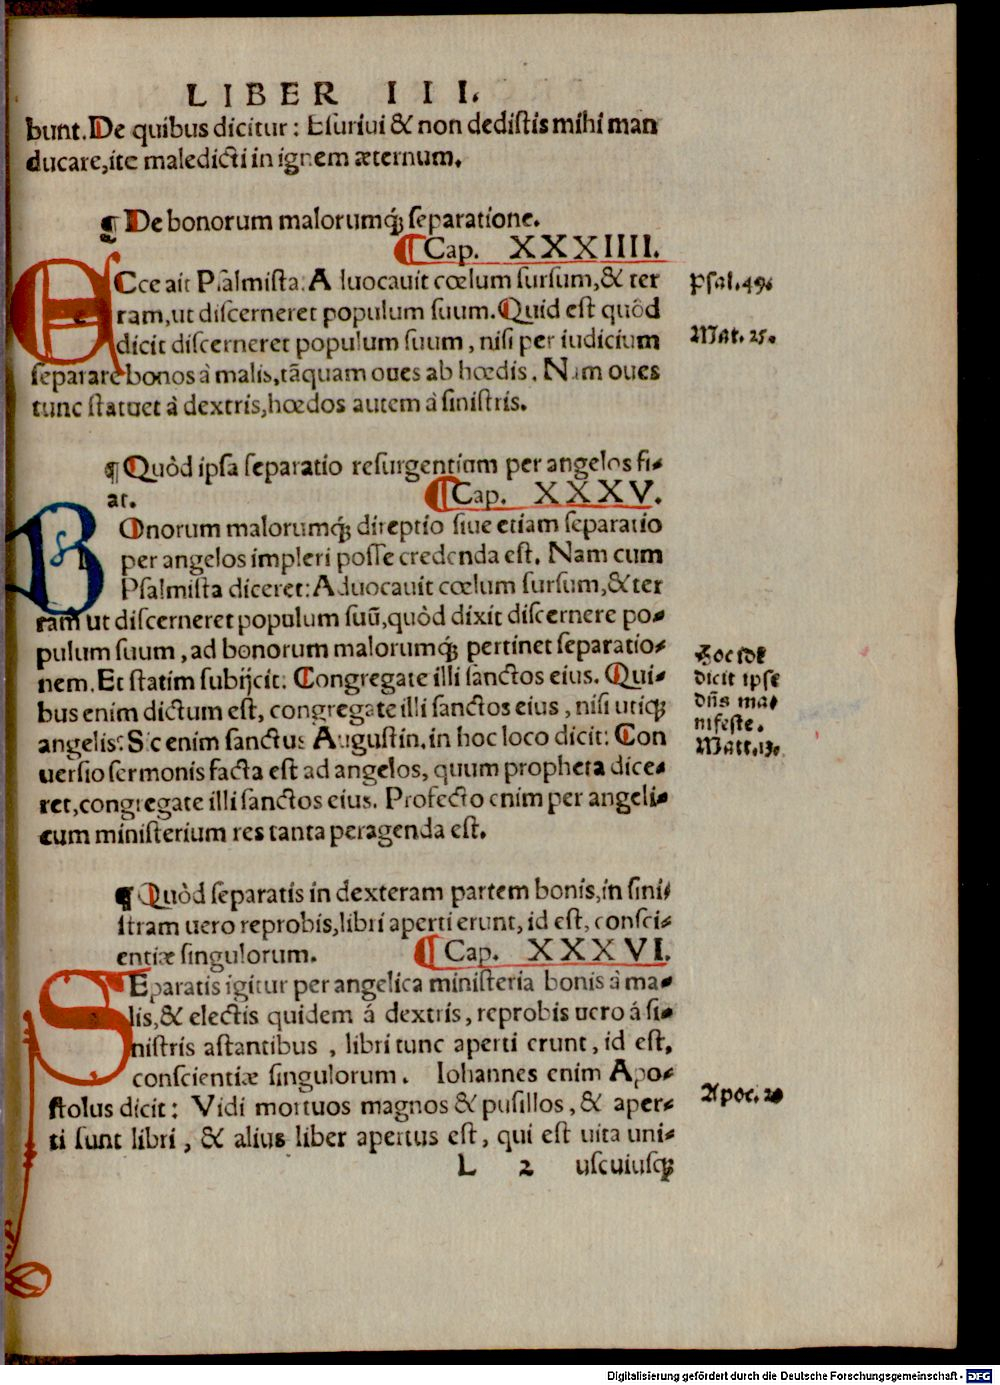 LIBER III.
bunt. De quibus dicitur: Esuriui & non dedistis mihi man
ducare, ite maledicti in ignem æternum.
¶ De bonorum malorumq́; separatione.
¶ Cap. XXXIIII.
ECce ait Psalmista: Aduocauit cœlum sursum, & ter
ram, ut discerneret populum suum. Quid est quòd
dicit discerneret populum suum, nisi per iudicium
separare bonos à malis, tãquam oues ab hœdis. Nam oues
tunc statuet à dextris, hœdos autem à sinistris.
Psal. 49.
Mat. 25.
¶ Quòd ipsa separatio resurgentium per angelos fi-
at.
¶ Cap. XXXV.
BOnorum malorumq́; direptio siue etiam separatio
per angelos impleri posse credenda est. Nam cum
Psalmista diceret: Aduocauit cœlum sursum, & ter
ram ut discerneret populum suũ, quòd dixit discernere po-
pulum suum, ad bonorum malorumq́; pertinet separatio-
nem. Et statim subijcit: Congregate illi sanctos eius. Qui-
bus enim dictum est, congregate illi sanctos eius, nisi utiq;
angelis: Sic enim sanctus Augustin. in hoc loco dicit: Con
uersio sermonis facta est ad angelos, quum propheta dice-
ret, congregate illi sanctos eius. Profecto enim per angeli-
cum ministerium res tanta peragenda est.
Hoc idẽ
dicit ipse
dñs ma-
nifeste.
Matt. 13.
¶ Quòd separatis in dexteram partem bonis, in sini-
stram uero reprobis, libri aperti erunt, id est, consci-
entiæ singulorum.
¶ Cap. XXXVI.
SEparatis igitur per angelica ministeria bonis à ma-
lis, & electis quidem á dextris, reprobis uero á si-
nistris astantibus, libri tunc aperti erunt, id est,
conscientiæ singulorum. Iohannes enim Apo-
stolus dicit: Vidi mortuos magnos & pusillos, & aper-
ti sunt libri, & alius liber apertus est, qui est uita uni-
Apoc. 20
L 2 uscuiusq;
Digitalisierung gefördert durch die Deutsche Forschungsgemeinschaft - DFG